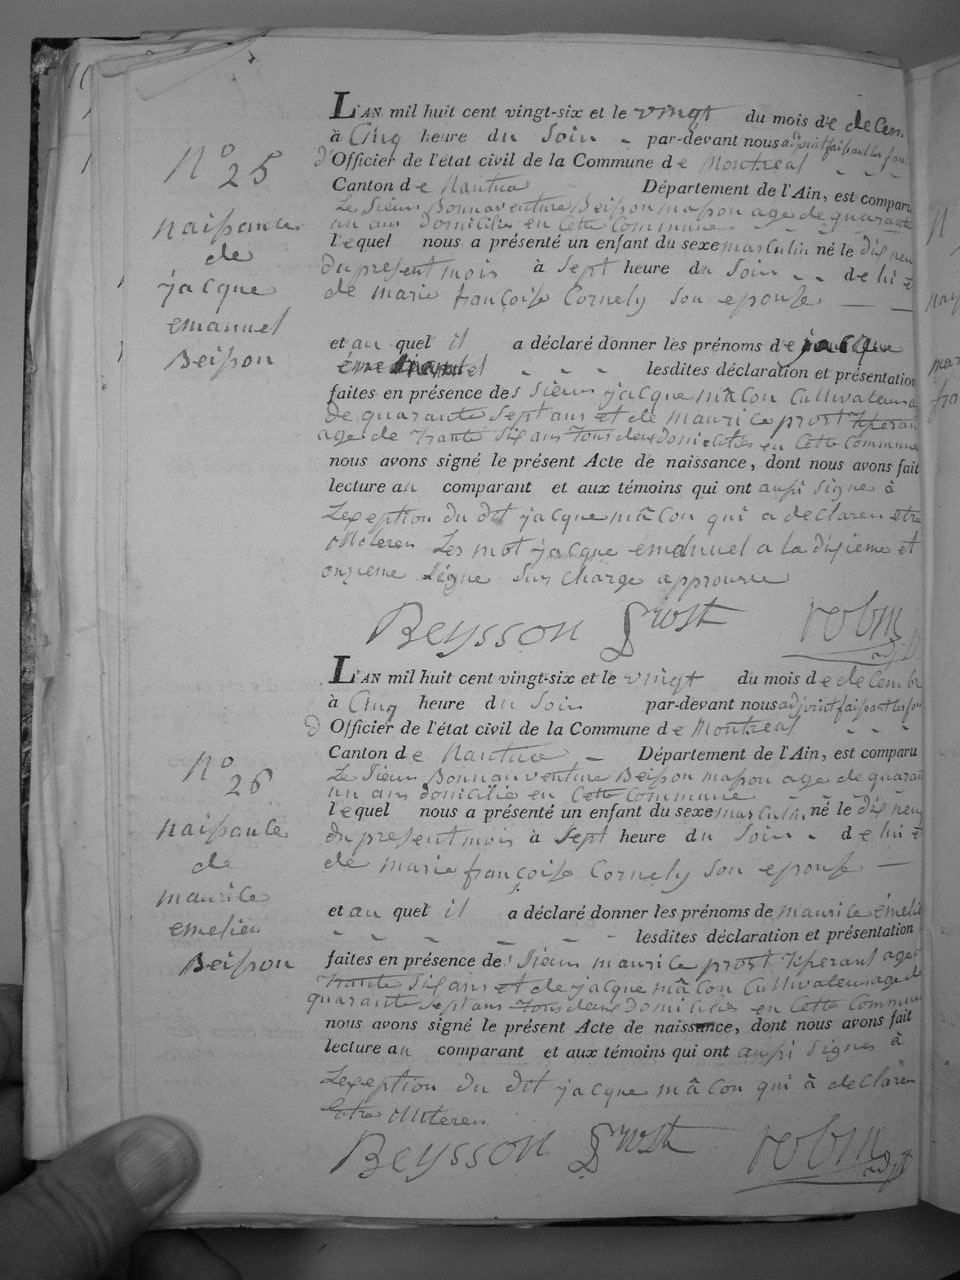 N° 25
naissance
de
jacque
emanuel
Beisson
L'AN mil huit cent vingt-six et le vingt du mois de decem
à Cinq heure du Soir - par-devant nous adjoint faisant les fon
d'Officier de l'état civil de la Commune de Montreal
Canton de Nantua Département de l'Ain, est comparu
Le Sieur Bonnaventure Beisson masson age de quarante
un ans domicilié en Cette Commune
lequel nous a présenté un enfant du sexe masculin né le dis neu
du present mois à Sept heure du Soir - - de lui et
de marie françoise Cornely Son epouse
et au quel il a déclaré donner les prénoms de jacque
émanuel - - - lesdites déclaration et présentation
faites en présence des Sieur jacque mâcon Cultivateur a
de quarante Sept ans et de maurice prost
age de trante Six ans tous deux domiciliés en Cette Commune
nous avons signé le présent Acte de naissance, dont nous avons fait
lecture au comparant et aux témoins qui ont aussi Signes à
Lexeption du dit jacque mâcon qui a declaren etre
illiteren Les mot jacque émanuel a la disieme et
onzieme Ligne Sur charge approuvee
Beysson Prost robin
adjt
N° 26
naissance
de
maurice
emelien
Beisson
L'AN mil huit cent vingt-six et le vingt du mois de decembr
à Cinq heure du Soir par-devant nous adjoint faisant les fon
d Officier de l'état civil de la Commune de Montreal
Canton de Nantua - Département de l'Ain, est comparu
Le Sieur Bonnanventure Beisson masson age de quaran
un ans domicilié en Cette Commune
lequel nous a présenté un enfant du sexe masculin né le dis neu
du present mois à Sept heure du Soir - de lui et
de marie françoise Cornely Son epouse
et au quel il a déclaré donner les prénoms de maurice émelie
- - - - - - lesdites déclaration et présentation
faites en présence des Sieur maurice prost age
trante Six ans et de jacque mâcon Cultivateur age de
quarante Sept ans tous deux domiciliés en Cette Commune
nous avons signé le présent Acte de naissance, dont nous avons fait
lecture au comparant et aux témoins qui ont aussi Signes à
Lexeption du dit jacque mâcon qui à declaren
Etre illiteren
Beysson Prost robin
adjt